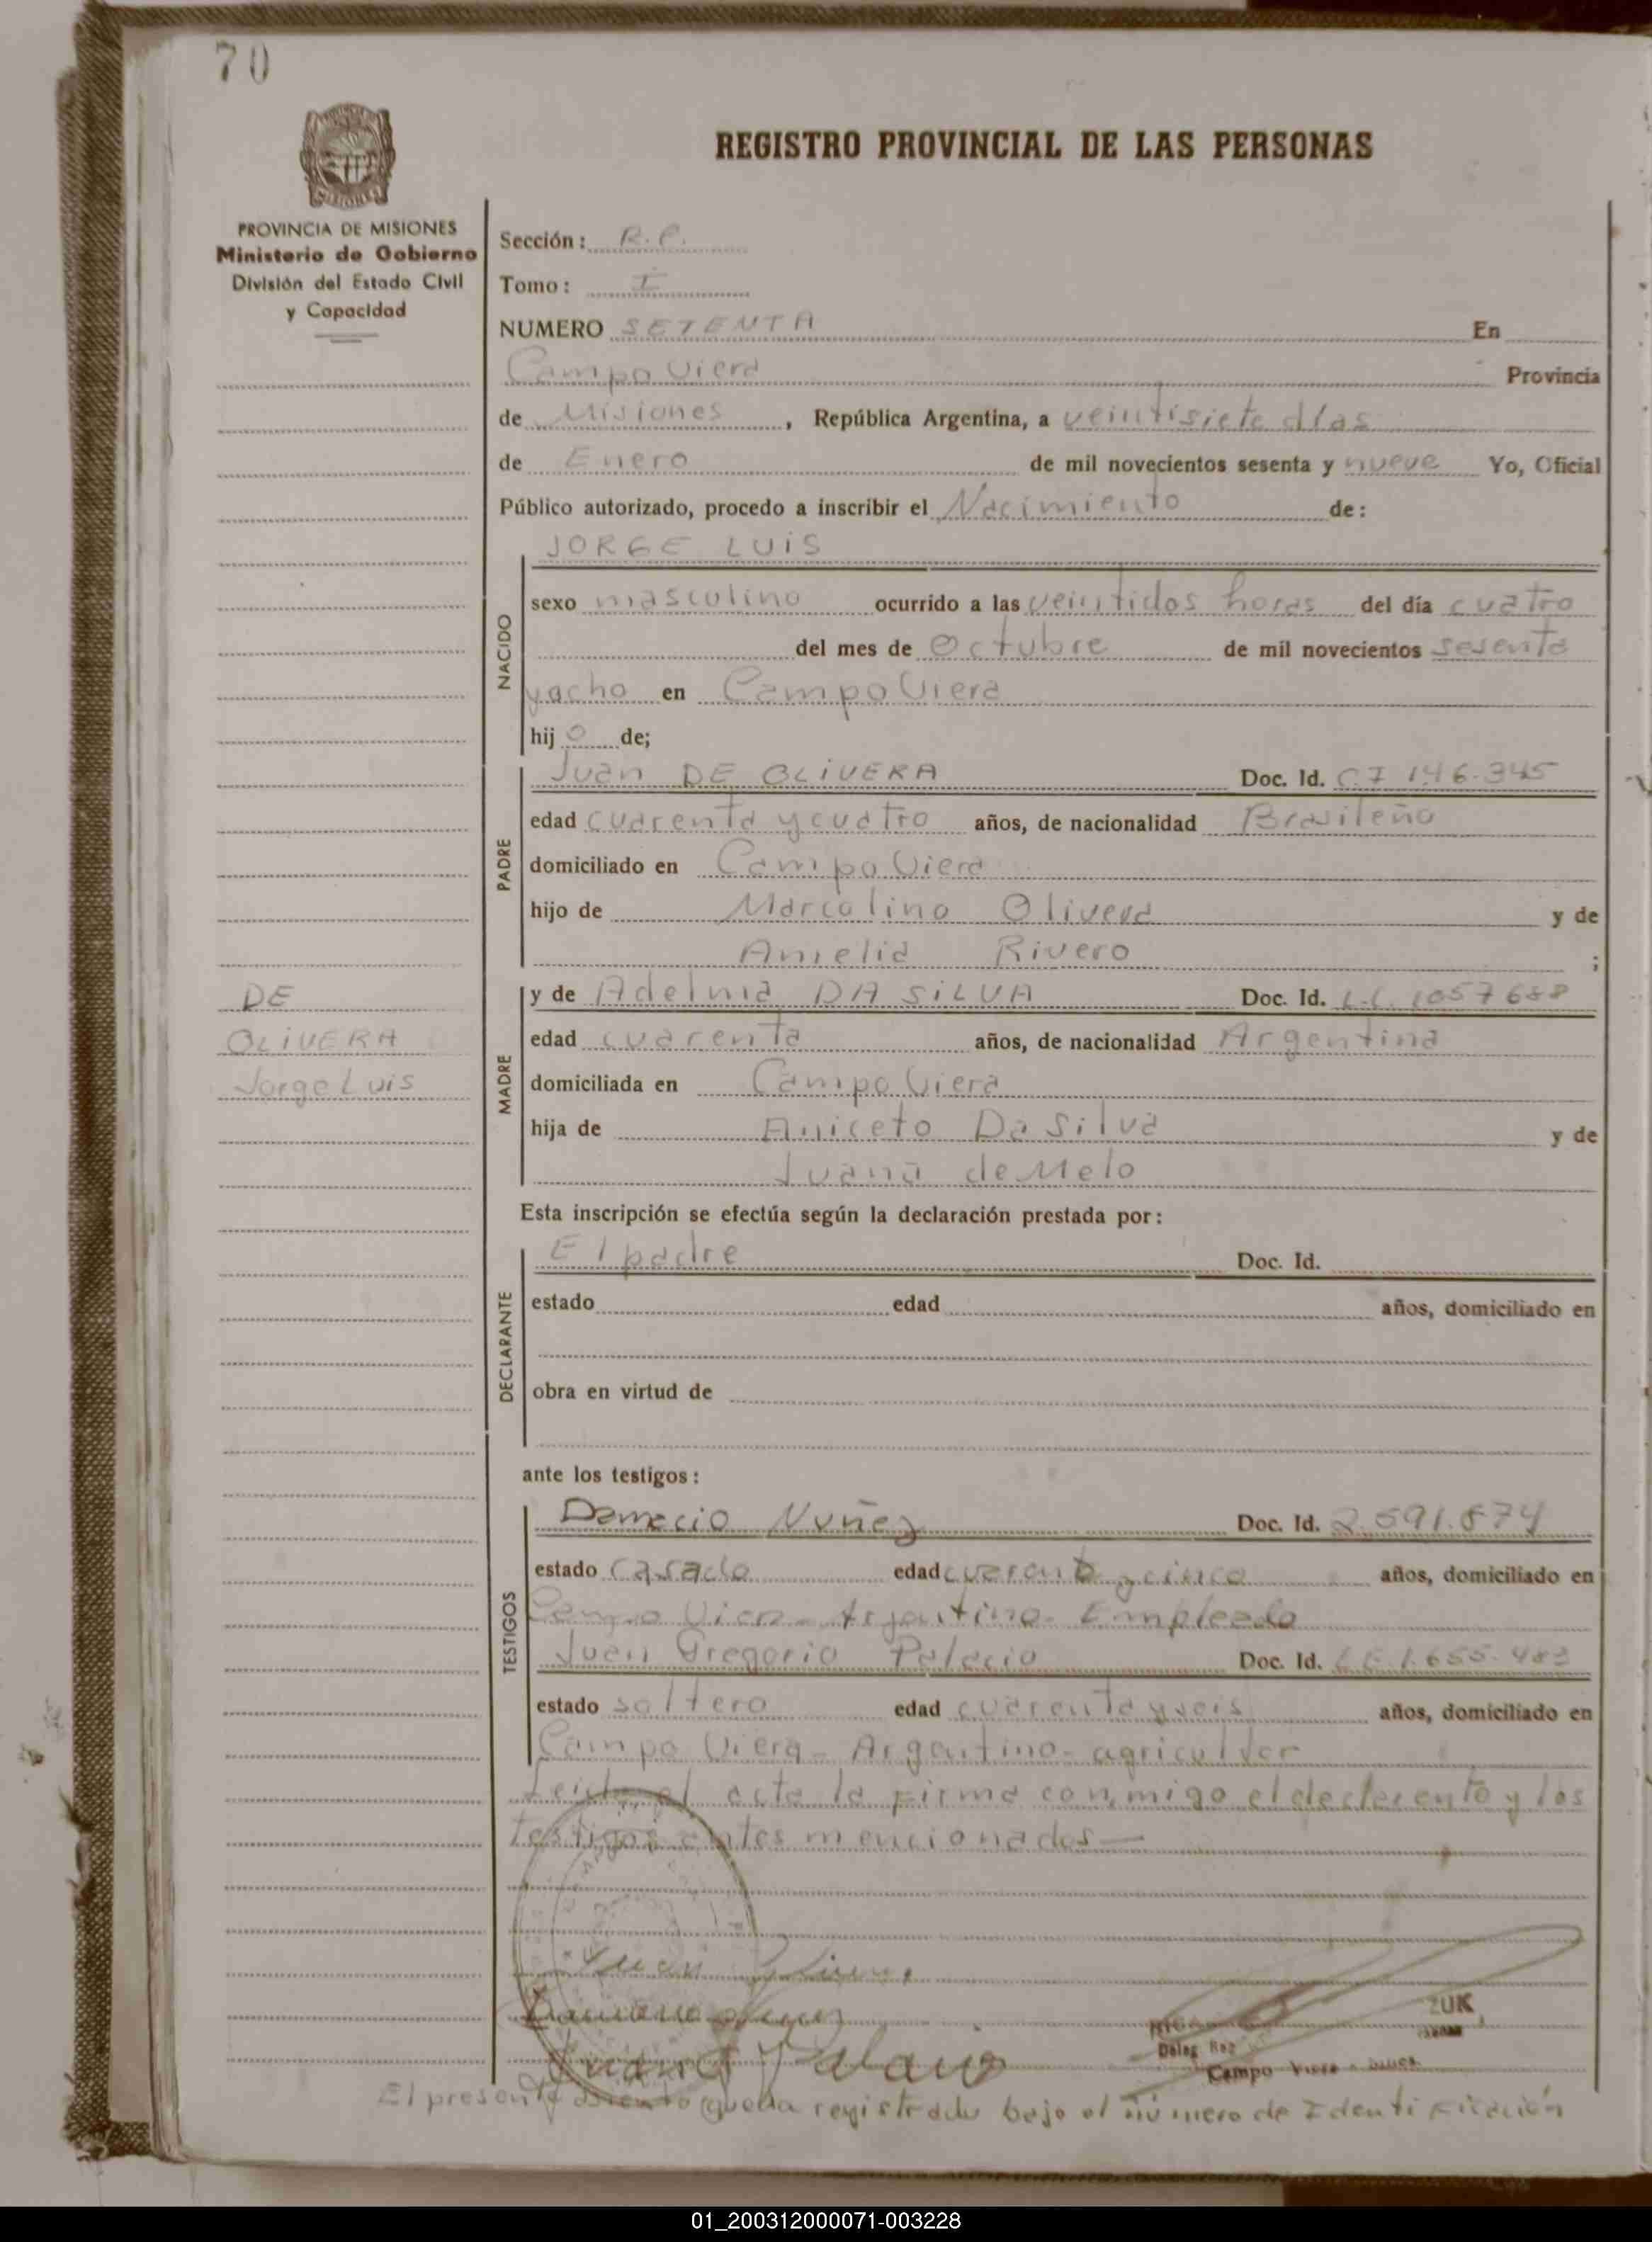 70
REGISTRO PROVINCIAL DE LAS PERSONAS
PROVINCIA DE MISIONES
Ministerio de Gobierno
División del Estado Civil
y Capacidad
Sección: R.P.
Tomo: I
NUMERO SETENTA En
Campo Viera Provincia
de Misiones, República Argentina, a veintisiete dias
de Enero de mil novecientos sesenta y nueve Yo, Oficial
Público autorizado, procedo a inscribir el Nacimiento de:
JORGE LUIS
NACIDO
sexo masculino ocurrido a las veintidos horas del día cuatro
del mes de Octubre de mil novecientos sesenta
yocho en Campo Viera
hijo de;
PADRE
Juan DE OLIVERA Doc. Id. C.I 146.345
edad cuarenta y cuatro años, de nacionalidad Brasileña
domiciliado en Campo Viera
hijo de Marcolino Olivera y de
Amelia Rivero ;
DE
OLIVERA
Jorge Luis
MADRE
y de Adelma DA SILVA Doc. Id. L.C. 1057688
edad cuarenta años, de nacionalidad Argentina
domiciliada en Campo Viera
hija de Aniceto Da Silva y de
Juana de Melo
Esta inscripción se efectúa según la declaración prestada por:
DECLARANTE
El padre Doc. Id.
estado edad años, domiciliado en
obra en virtud de
ante los testigos:
TESTIGOS
Damacio Nuñez Doc. Id. 2.591.874
estado Casado edad cuarenta y cinco años, domiciliado en
Campo Viera - Argentino - Empleado
Juan Gregorio Palacio Doc. Id. L.E. 1.655.483
estado soltero edad cuarenta y seis años, domiciliado en
Campo Viera - Argentino - agricultor
Leida el acta la firma conmigo el declarante y los
testigos antes mencionados —
Juan
ZUK
Campo Viera
El presente asiento queda registrado bajo el número de Identificación
01_200312000071-003228